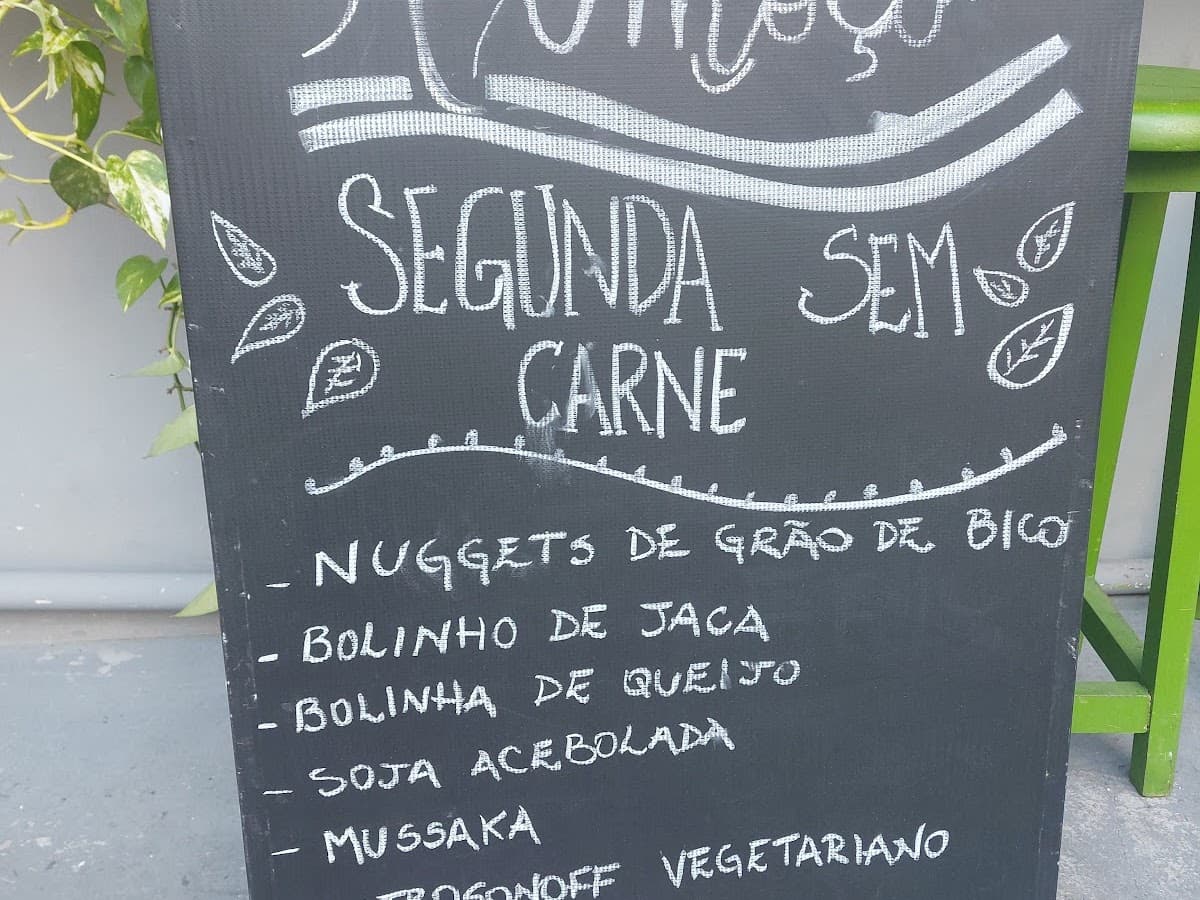 Almoço
SEGUNDA SEM
CARNE
- NUGGETS DE GRÃO DE BICO
- BOLINHO DE JACA
- BOLINHA DE QUEIJO
- SOJA ACEBOLADA
- MUSSAKA
TROGONOFF VEGETARIANO